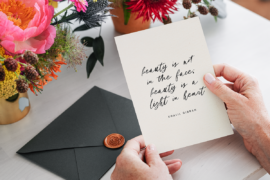 beauty is not
in the face;
beauty is a
light in heart
KAHLIL GIBRAN